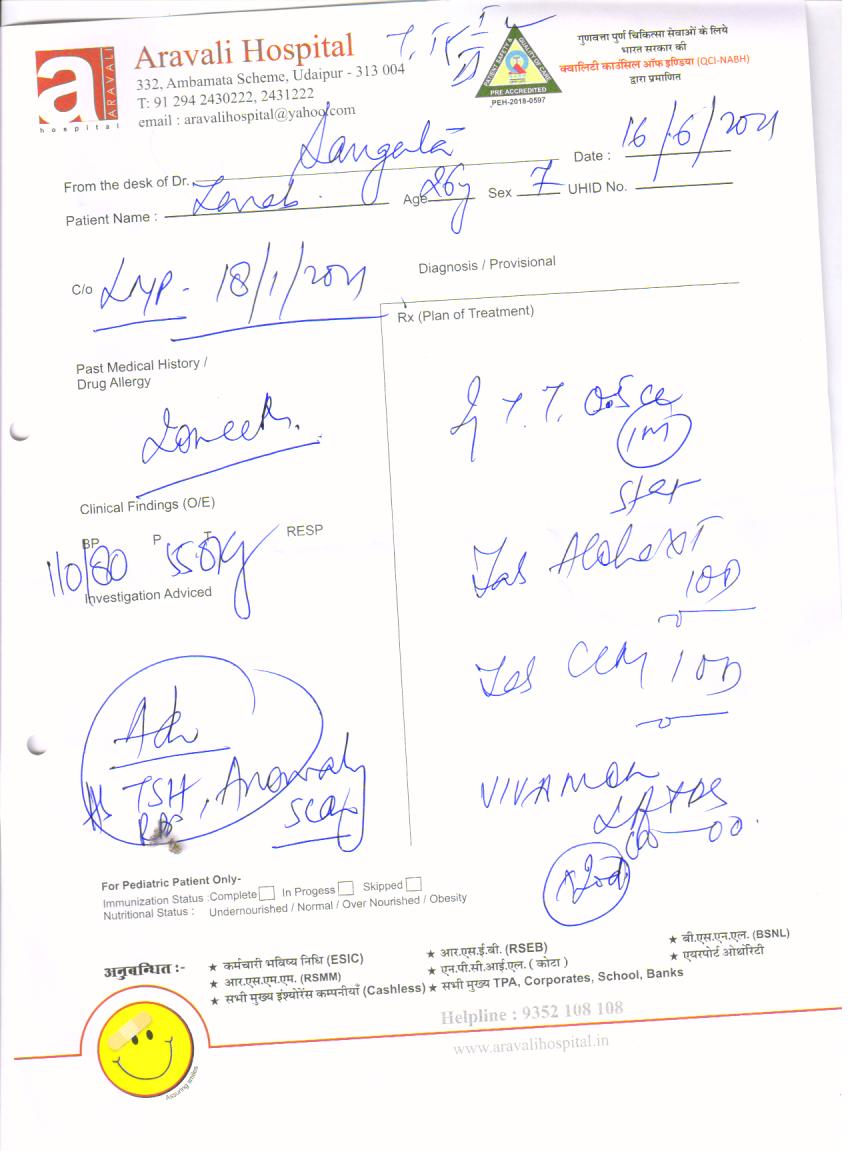 Aravali Hospital
ARAVALI
hospital
332, Ambamata Scheme, Udaipur - 313 004
T: 91 294 2430222, 2431222
email : aravalihospital@yahoo.com
PATIENT SAFETY & QUALITY OF CARE
PRE ACCREDITED
PEH-2018-0597
गुणवत्ता पुर्ण चिकित्सा सेवाओं के लिये
भारत सरकार की
क्वालिटी काउंसिल ऑफ इण्डिया (QCI-NABH)
द्वारा प्रमाणित
From the desk of Dr. Sangeeta
Date : 16/6/2021
Patient Name : Zaneb. Age 26y Sex F UHID No.
C/o LMP - 18/1/2021
Diagnosis / Provisional
Rx (Plan of Treatment)
Past Medical History /
Drug Allergy
T.T. 0.5cc
IM
Stat
Clinical Findings (O/E)
BP P T RESP
110/80 55kg
Investigation Adviced
Tab
1OD
Tab CCM 1OD
Adv
TSH, Anomaly
Scan
VIVAMOM
x20d
For Pediatric Patient Only-
Immunization Status :Complete In Progess Skipped
Nutritional Status : Undernourished / Normal / Over Nourished / Obesity
अनुबन्धित :-
★ कर्मचारी भविष्य निधि (ESIC) ★ आर.एस.ई.बी. (RSEB) ★ बी.एस.एन.एल. (BSNL)
★ आर.एस.एम.एम. (RSMM) ★ एन.पी.सी.आई.एल. ( कोटा ) ★ एयरपोर्ट ओथोरिटी
★ सभी मुख्य इंश्योरेंस कम्पनीयाँ (Cashless) ★ सभी मुख्य TPA, Corporates, School, Banks
Helpline : 9352 108 108
www.aravalihospital.in
Assuring smiles